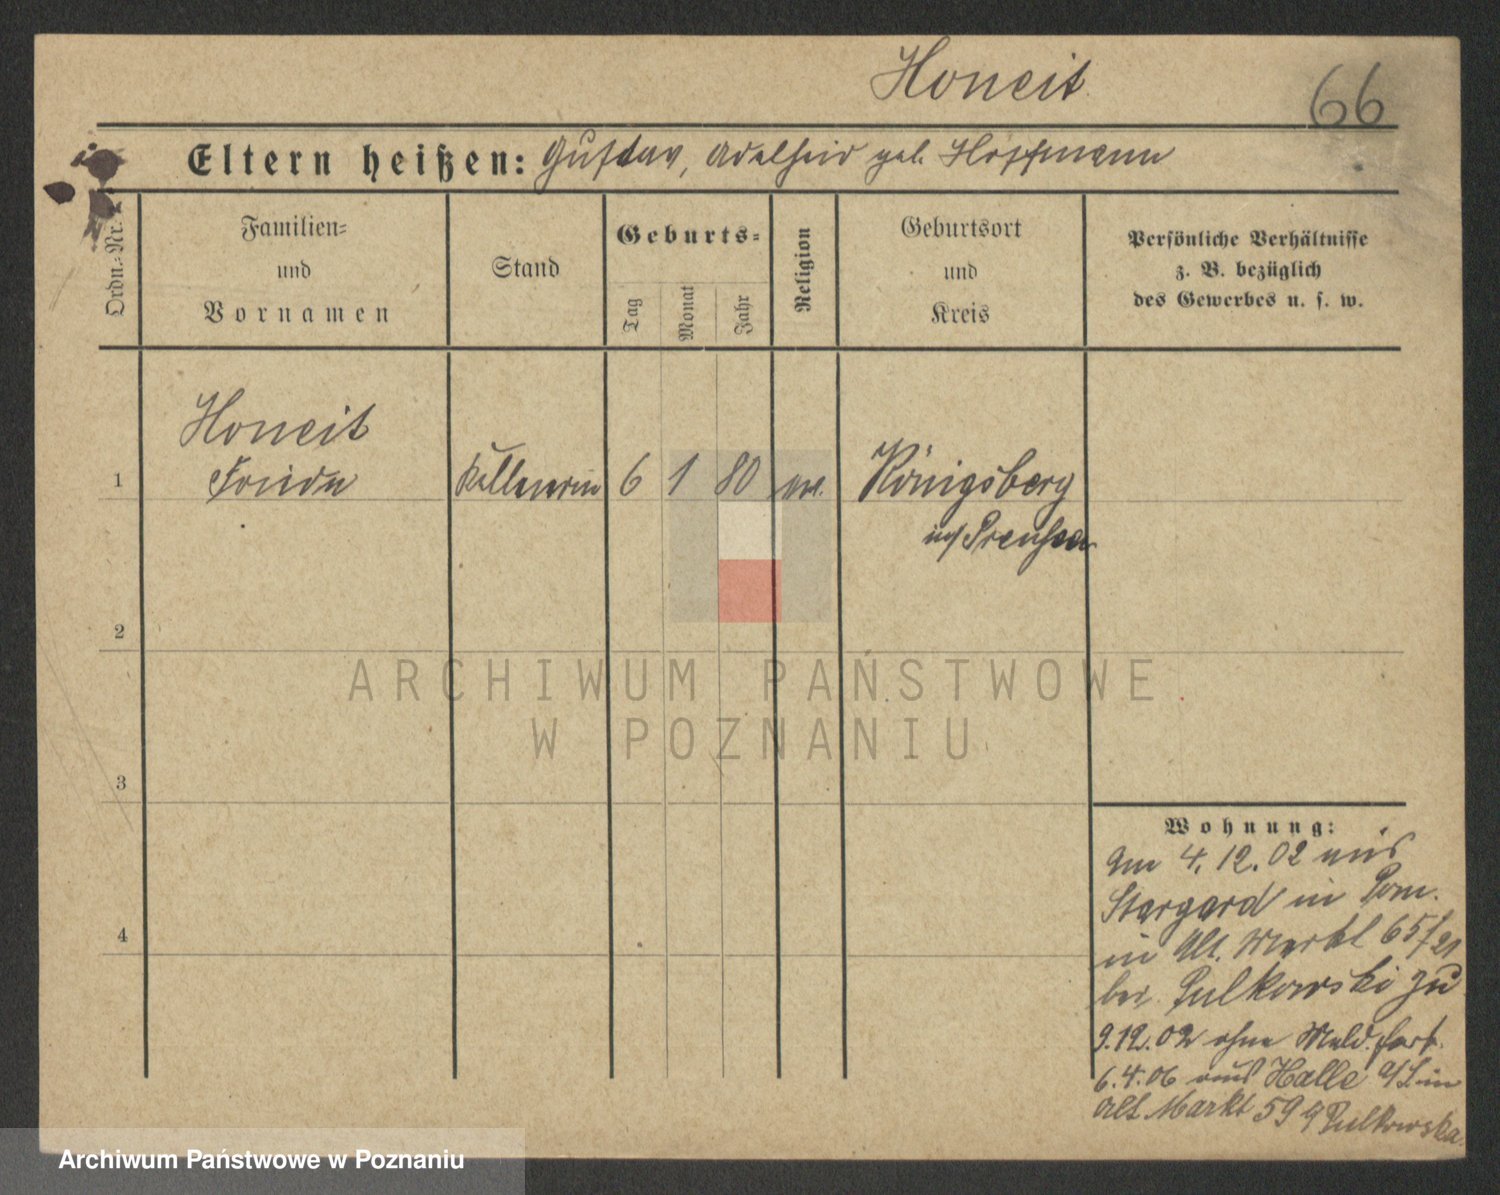 Honcit
66
Eltern heißen: Gustav, Adelheid geb. Hoffmann
Ordn.-Nr.
Familien-
und
Vornamen
Stand
Geburts-
Tag
Monat
Jahr
Religion
Geburtsort
und
Kreis
Persönliche Verhältnisse
z. B. bezüglich
des Gewerbes u. s. w.
Honcit
1 Frieda Kellnerin 6 1 80 ev. Königsberg
in/ Preußen
2
ARCHIWUM PAŃSTWOWE
W POZNANIU
3
Wohnung:
Am 4.12.02 aus
Stargard in Pom.
4
in Alt. Markt 65/21
bei Pulkowski zu
9.12.02 ohne Meld. fort.
6.4.06 aus Halle a/S. in
Alt. Markt 59 Pulkowska
Archiwum Państwowe w Poznaniu